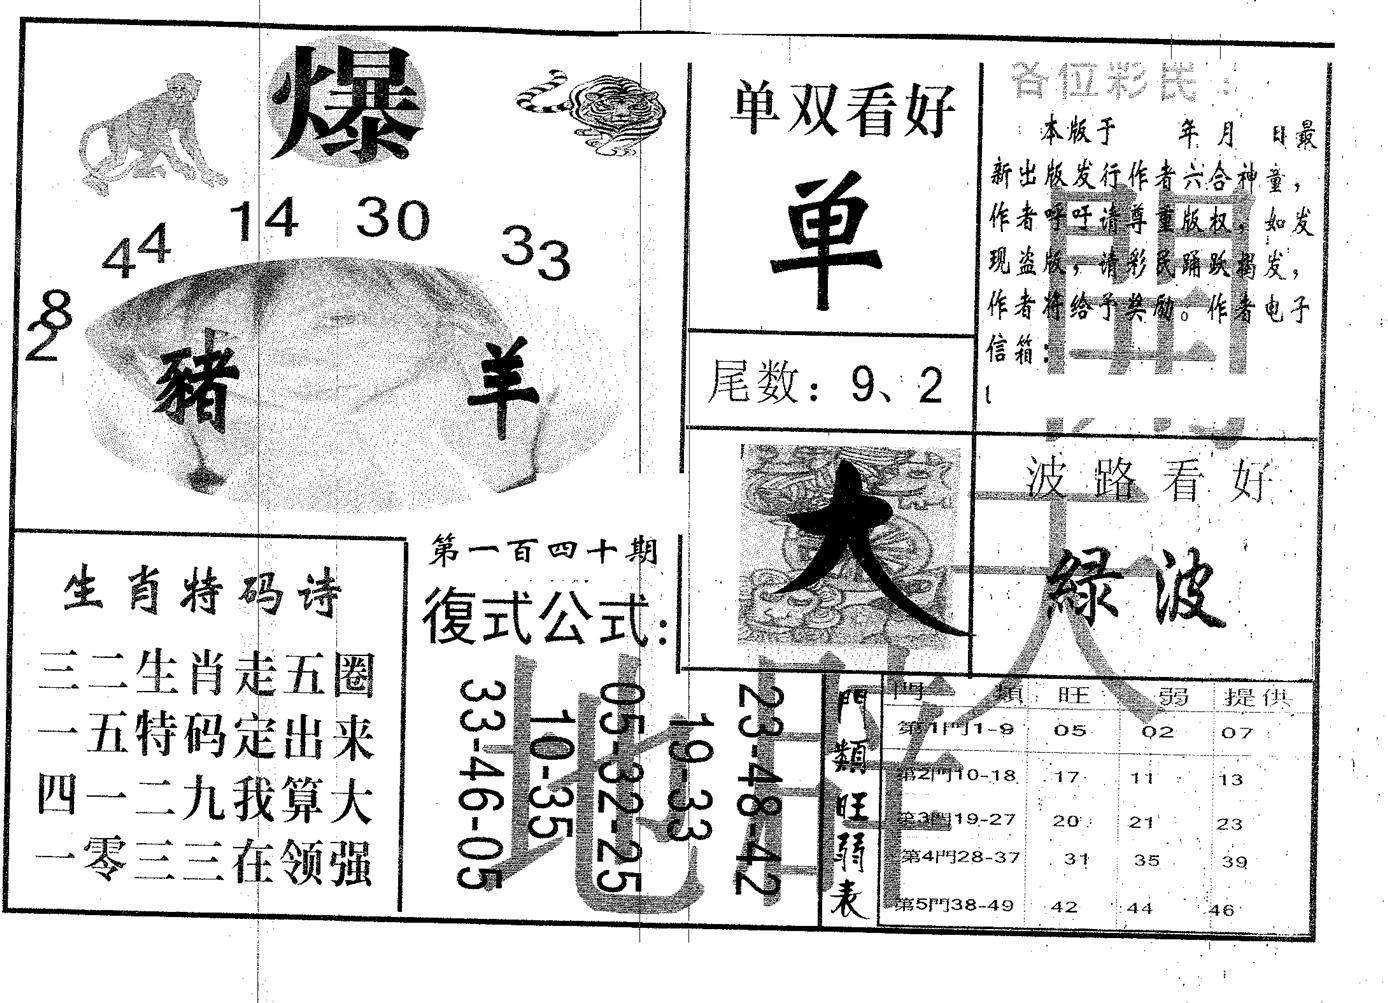 爆
44
14
30
33
8
2
豬
羊
单双看好
单
尾数：9、2
各位彩民：
本版于 年 月 日最
新出版发行作者六合神童，
作者呼吁请尊重版权，如发
现盗版，请彩民踊跃揭发，
作者将给予奖励。作者电子
信箱：
大
波路看好
緑波
生肖特码诗
三二生肖走五圈
一五特码定出来
四一二九我算大
一零三三在领强
第一百四十期
復式公式：
23-48-42
19-33
05-32-25
10-35
33-46-05
門類旺弱表
門 類 旺 弱 提供
第1門1-9 05 02 07
第2門10-18 17 11 13
第3門19-27 20 21 23
第4門28-37 31 35 39
第5門38-49 42 44 46